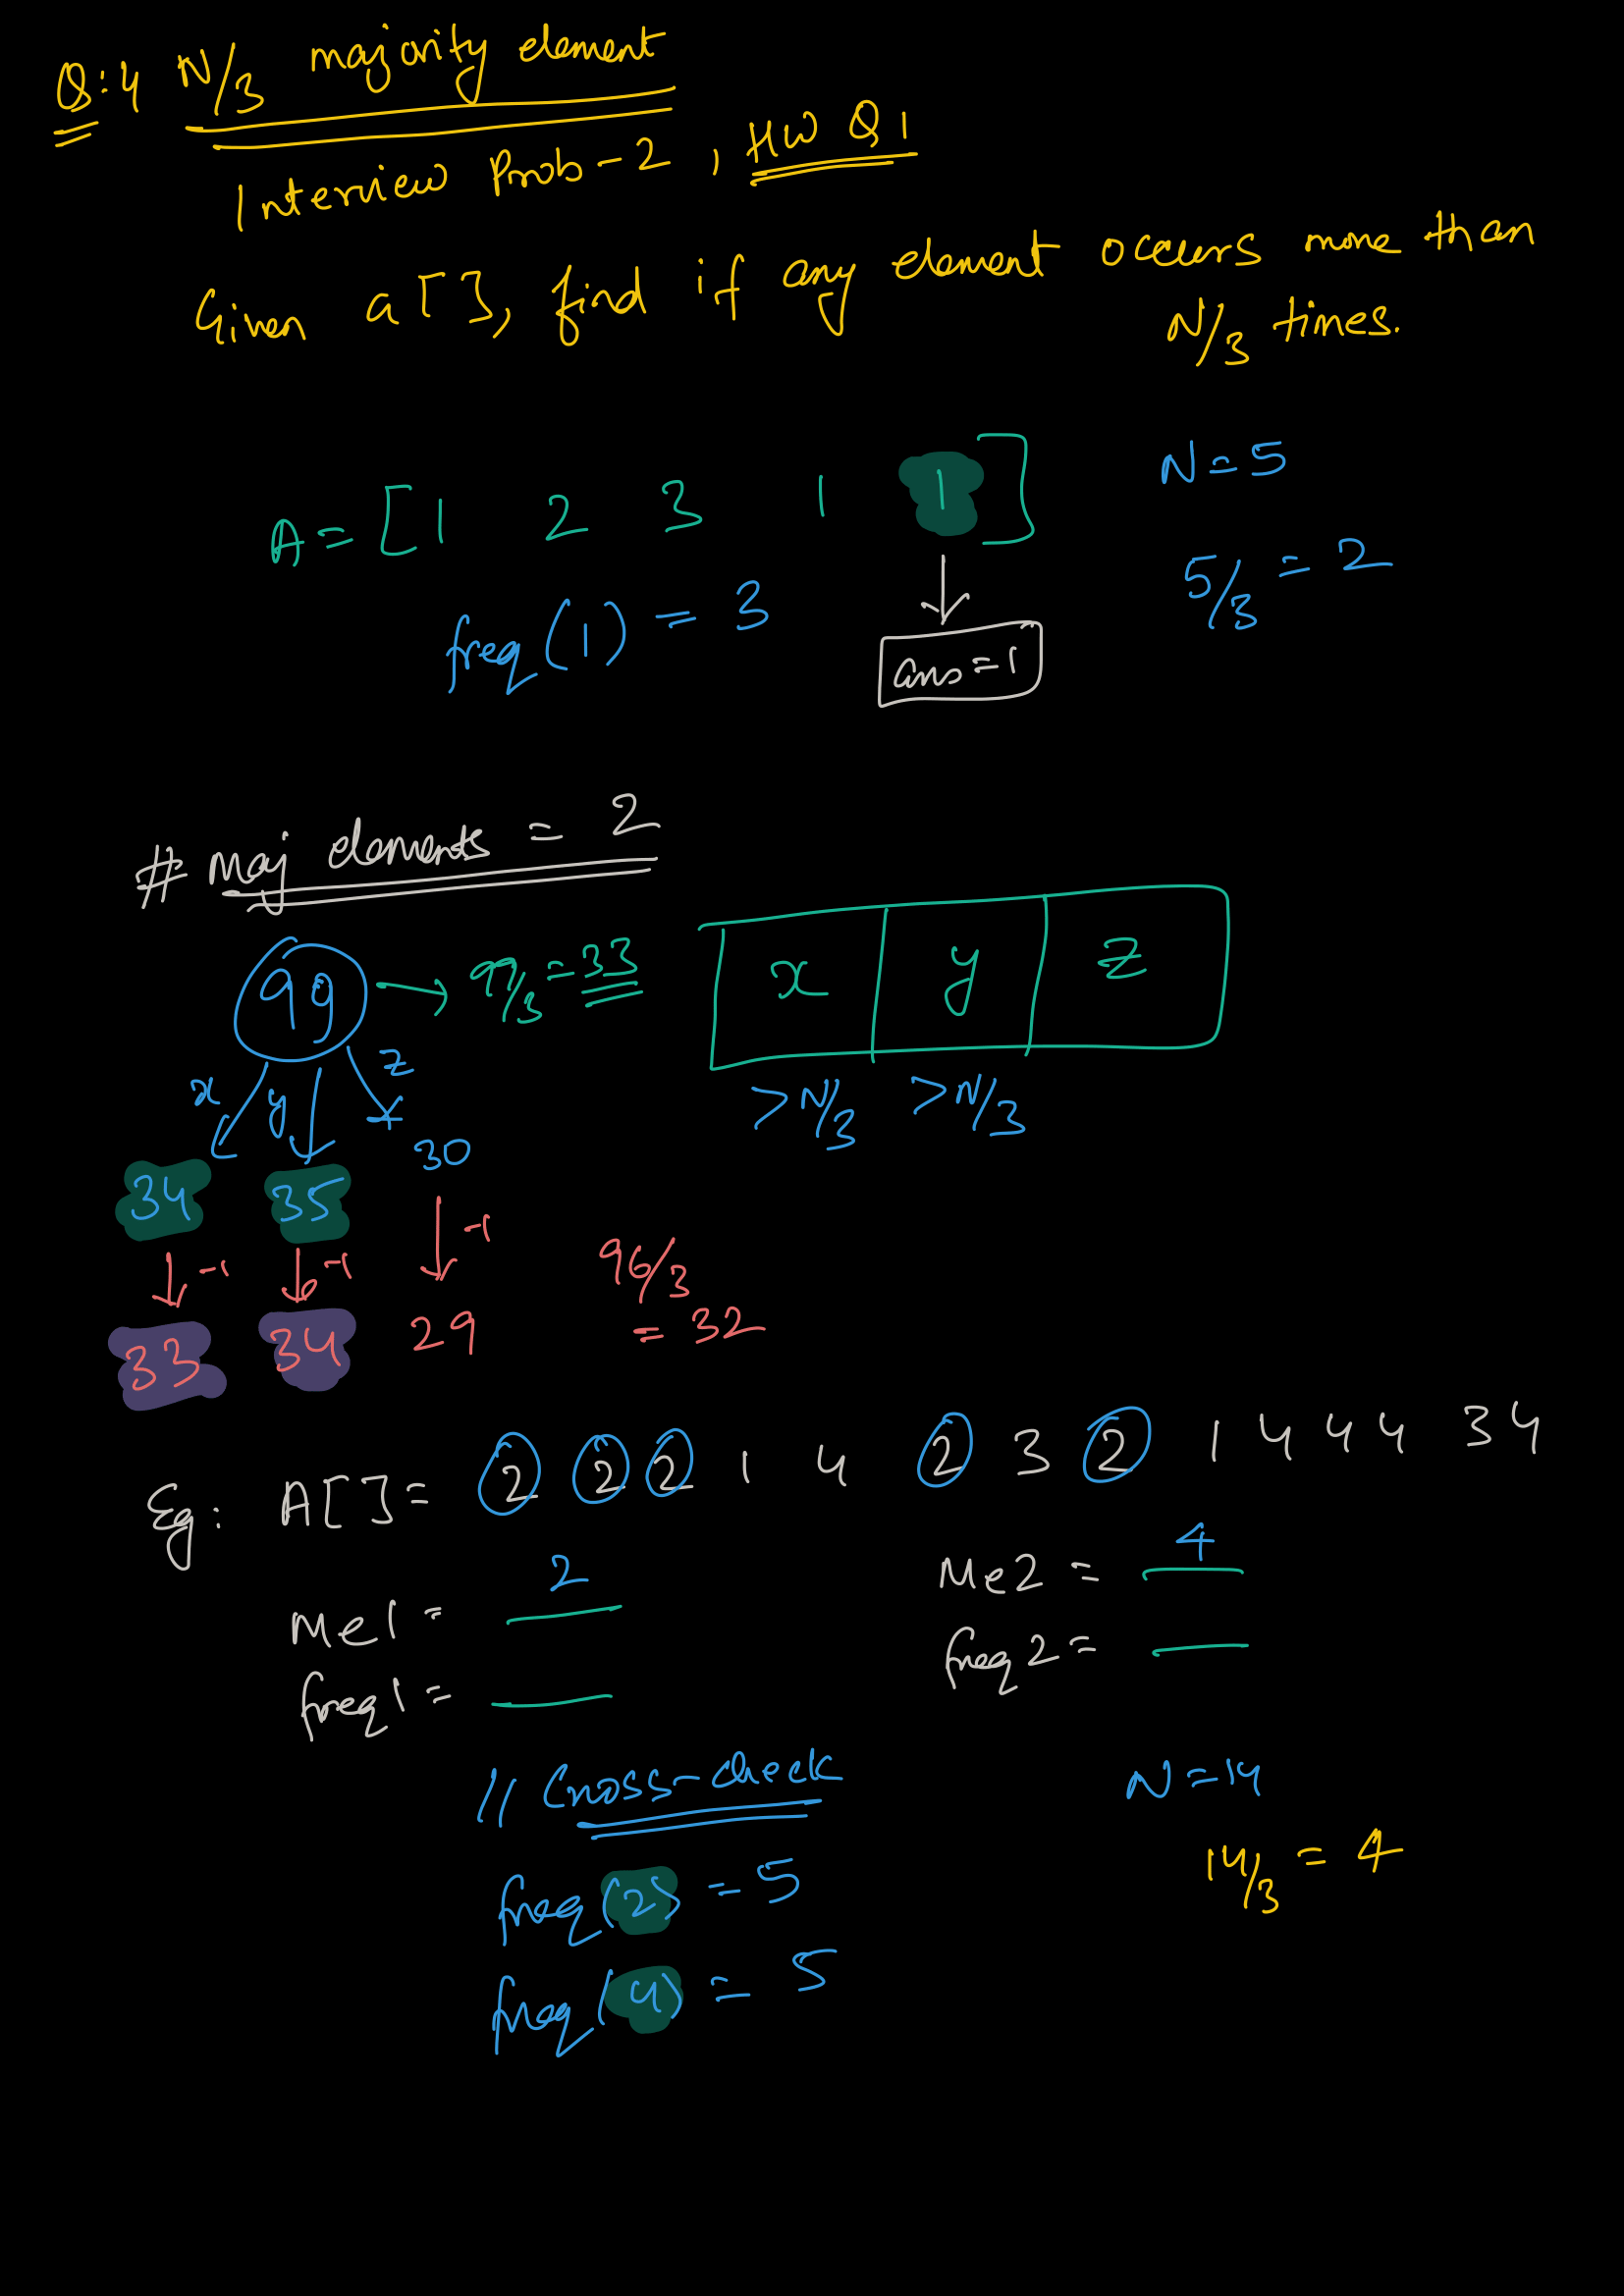 Q:4 N/3 majority element
Interview Prob-2, HW Q1
Given a[], find if any element occurs more than
N/3 times.
A = [1 2 3 1 1]
N=5
5/3 = 2
freq(1) = 3
ans=1
# Maj elements = 2
99 → 99/3 = 33
x y z
x y z
>N/3 >N/3
34 35 30
-1 -1 -1
33 34 29
96/3
= 32
Eg: A[] = 2 2 2 1 4 2 3 2 1 4 4 4 3 4
Me1 = 2
Me2 = 4
freq1 =
freq2 =
// Cross-check
N=14
14/3 = 4
freq(2) = 5
freq(4) = 5